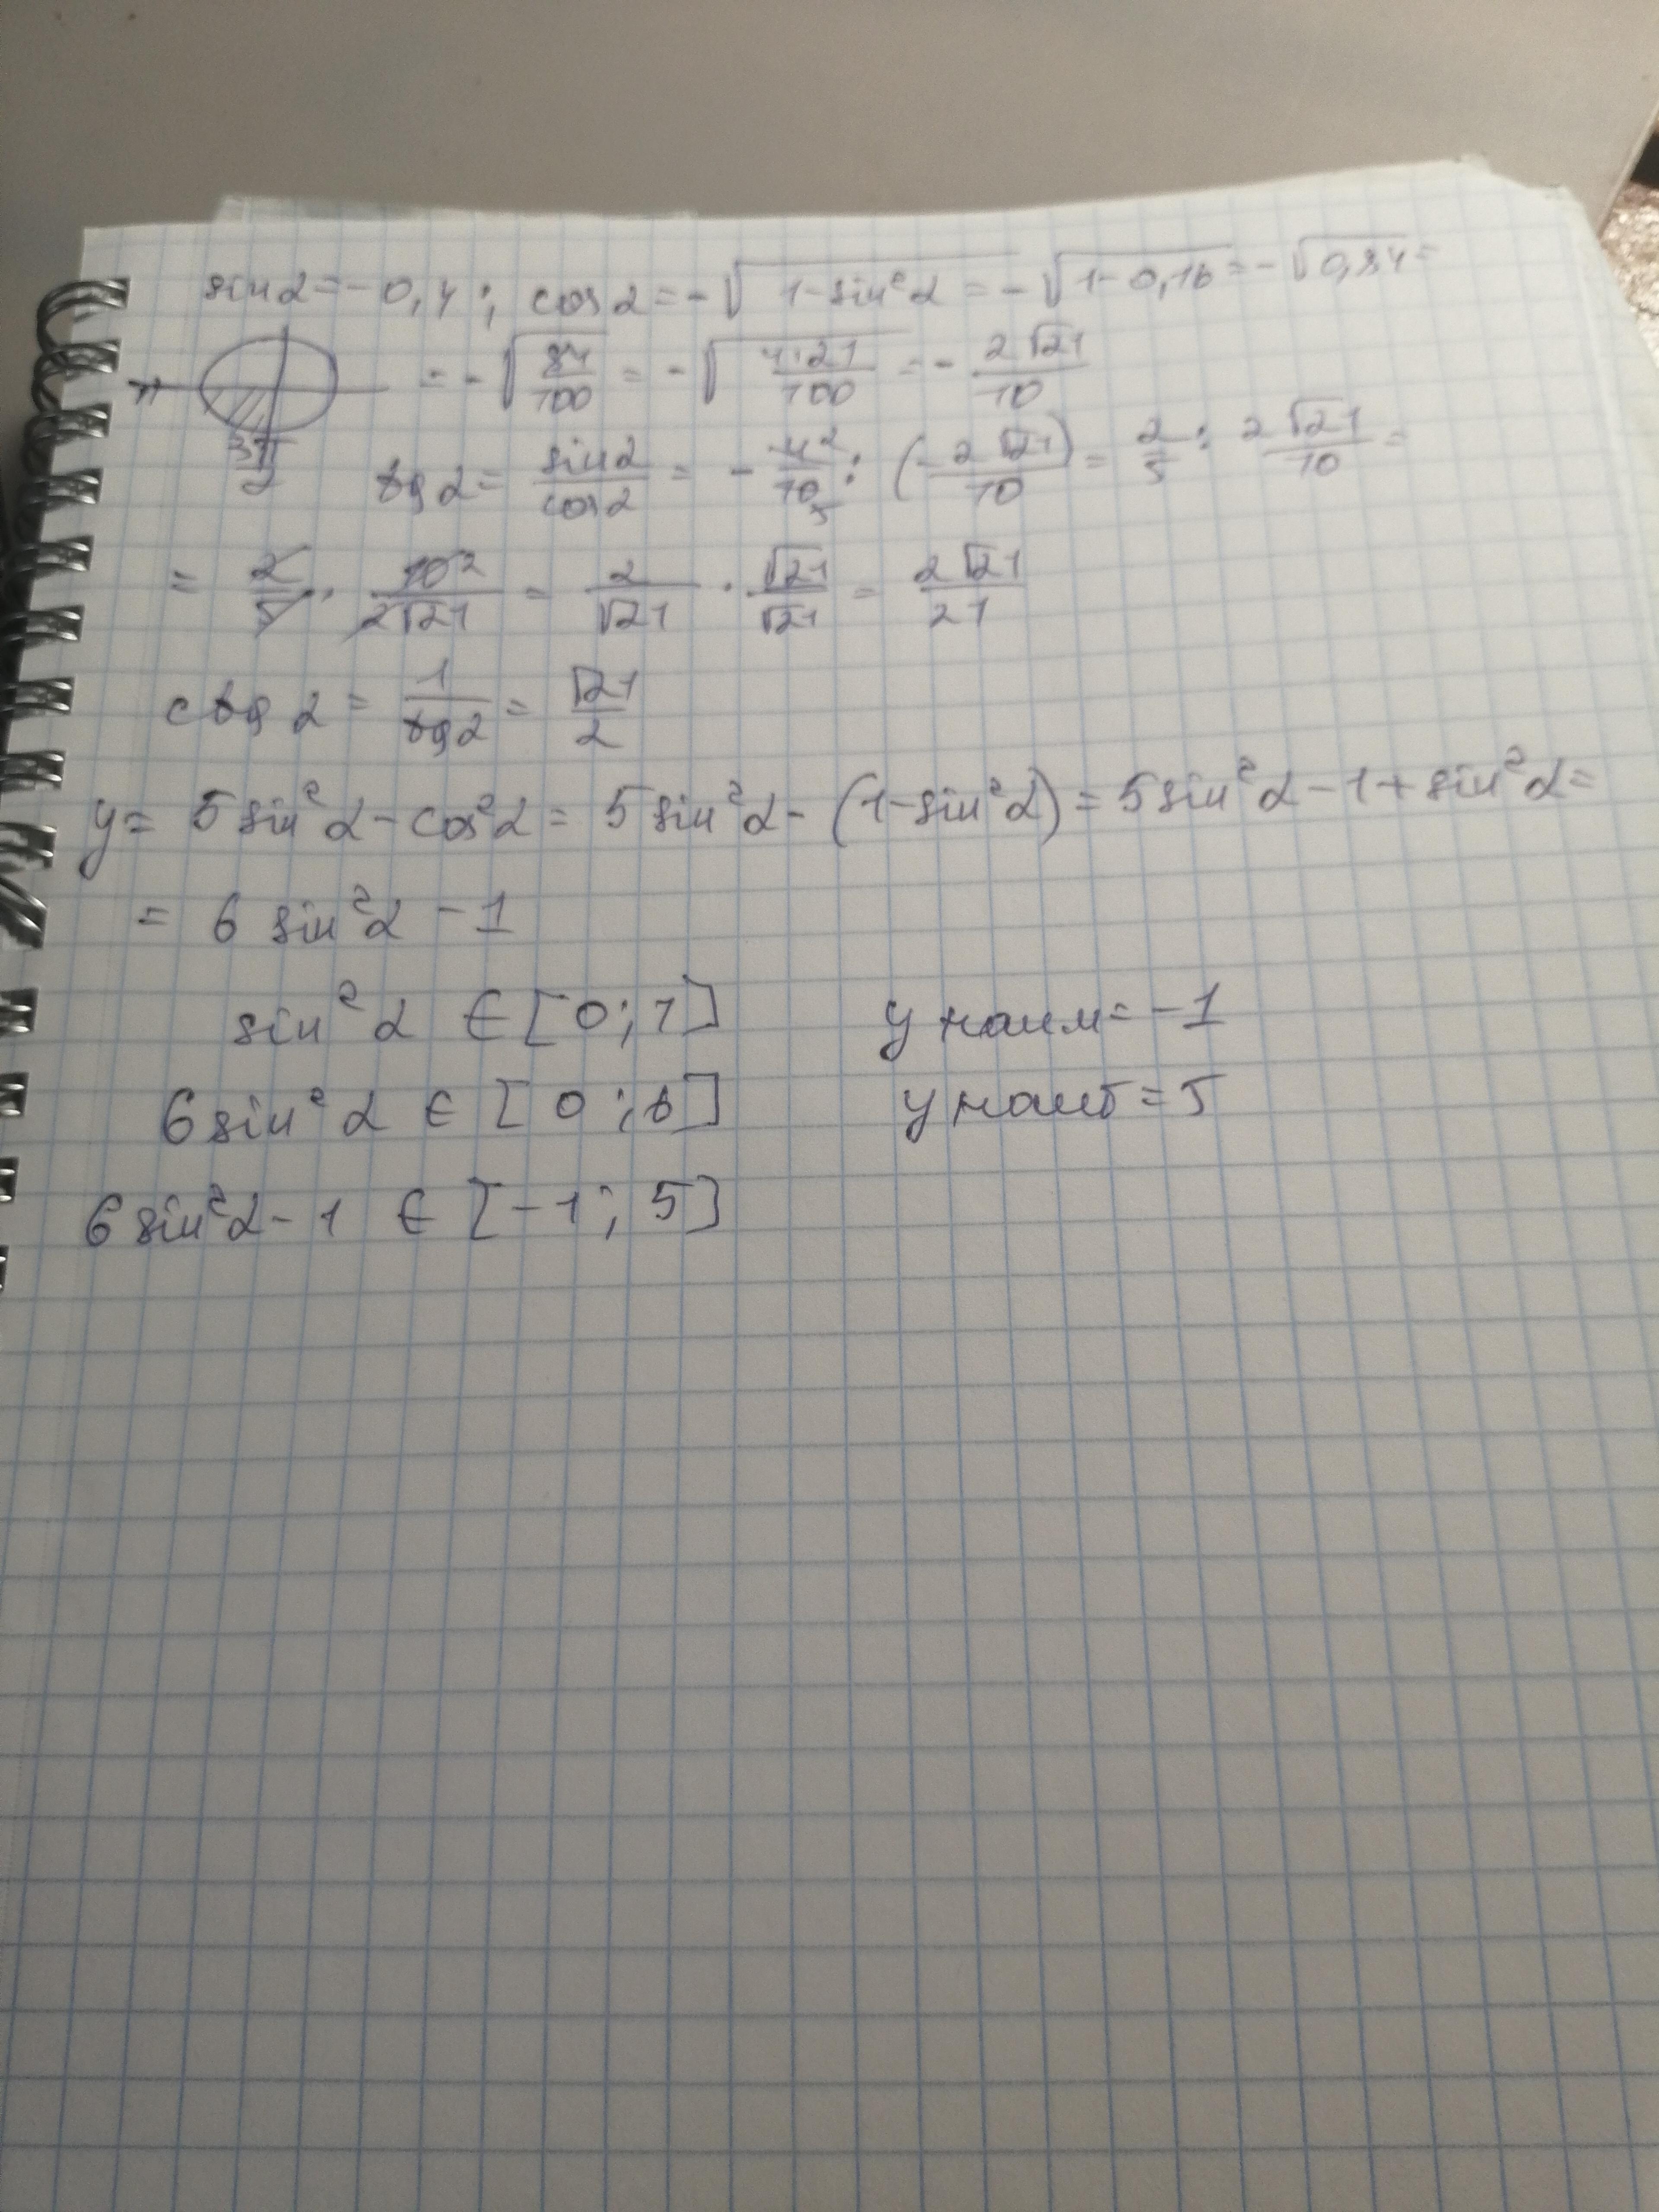 sin α = -0,4 ; cos α = -√(1-sin²α) = -√(1-0,16) = -√0,84 =
π = -√(84/100) = -√(4·21/100) = - 2√21/10
3π/2
tg α = sin α/cos α = - 4²/10₅ : (- 2√21/10) = 2/5 : 2√21/10 =
= 2/5 · 10²/2√21 = 2/√21 · √21/√21 = 2√21/21
ctg α = 1/tg α = √21/2
y = 5 sin²α - cos²α = 5 sin²α - (1-sin²α) = 5 sin²α - 1 + sin²α =
= 6 sin²α - 1
sin²α ∈ [0; 1] y наим = -1
6 sin²α ∈ [0; 6] y наиб = 5
6 sin²α - 1 ∈ [-1; 5]